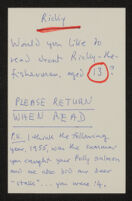 Ricky
Would you like to
read about Ricky-the-
fisherman, aged 13"
PLEASE RETURN
WHEN READ
P.S. I think the following
year, 1955, was the summer
you caught your Polly salmon
and we also did our deer
-"stalk"... you were 14.